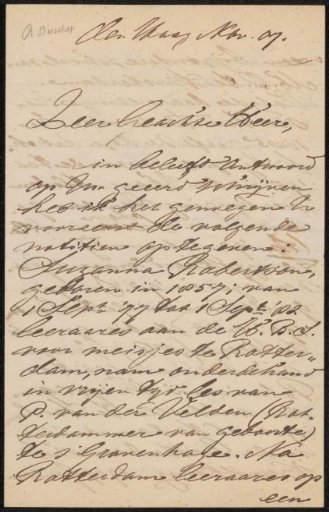 den Haag Nov. 07.
Zeer Geachte Heer,
in beleefd antwoord
op Uw geeerd schrijven
heb ik het genoegen U
de volgende
notitien op te geven:
Suzanna Robertson,
geboren in 1857; van
1 Sept. 77 tot 1 Sept. 82
leerares aan de H.B.S.
voor meisjes te Rotter-
dam, nam onderdehand
in vrijen tijd les van
P. van der Velden (Rot-
terdammer van geboorte)
te 's Gravenhage. Na
Rotterdam leerares op
een